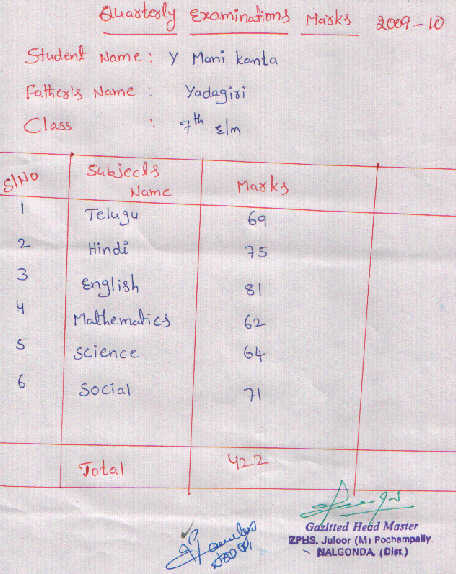 Quarterly Examinations Marks 2009-10
Student Name : Y Mani kanta
Father's Name : Yadagiri
Class : 7th E/m
Sl No Subjects Name Marks
1 Telugu 69
2 Hindi 75
3 English 81
4 Mathematics 62
5 Science 64
6 Social 71
Total 422
Gazitted Head Master
ZPHS, Juloor (M) Pochampally
NALGONDA, (Dist.)